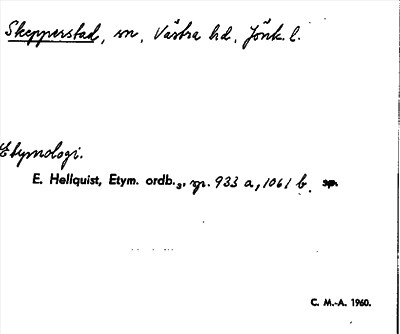 Skepperstad, sn, Västra hd, Jönk. l.
Etymologi.
E. Hellquist, Etym. ordb.3, sp. 933 a, 1061 b. sp.
C. M.-A. 1960.